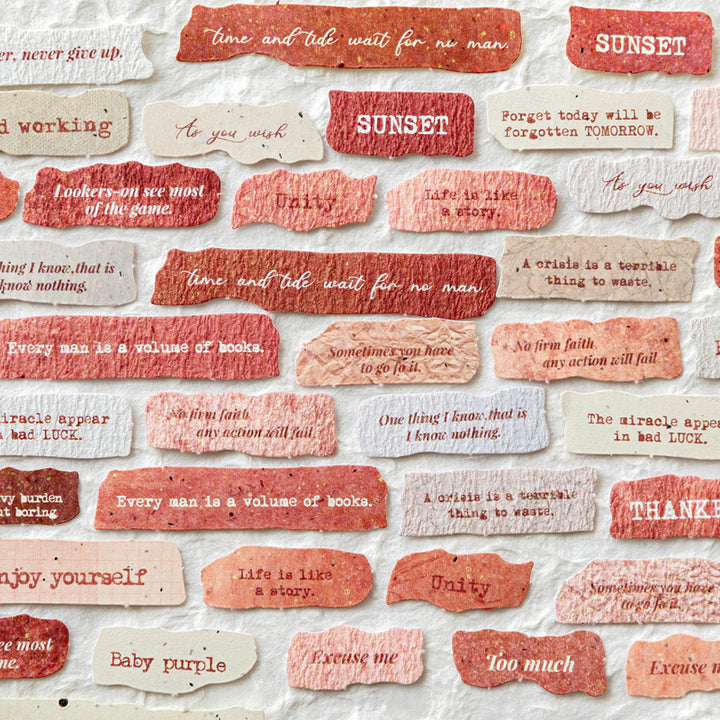 er, never give up.
time and tide wait for no man.
SUNSET
d working
As you wish
SUNSET
Forget today will be
forgotten TOMORROW.
Lookers-on see most
of the game.
Unity
Life is like
a story.
As you wish
hing I know,that is
know nothing.
time and tide wait for no man.
A crisis is a terrible
thing to waste.
Every man is a volume of books.
Sometimes you have
to go fo it.
No firm faith
any action will fail
miracle appear
n bad LUCK.
No firm faith
any action will fail
One thing I know,that is
I know nothing.
The miracle appea
in bad LUCK.
vy burden
ut boring
Every man is a volume of books.
A crisis is a terrible
thing to waste.
THANKF
njoy yourself
Life is like
a story.
Unity
Sometimes you have
to go fo it.
ee most
me.
Baby purple
Excuse me
Too much
Excuse m